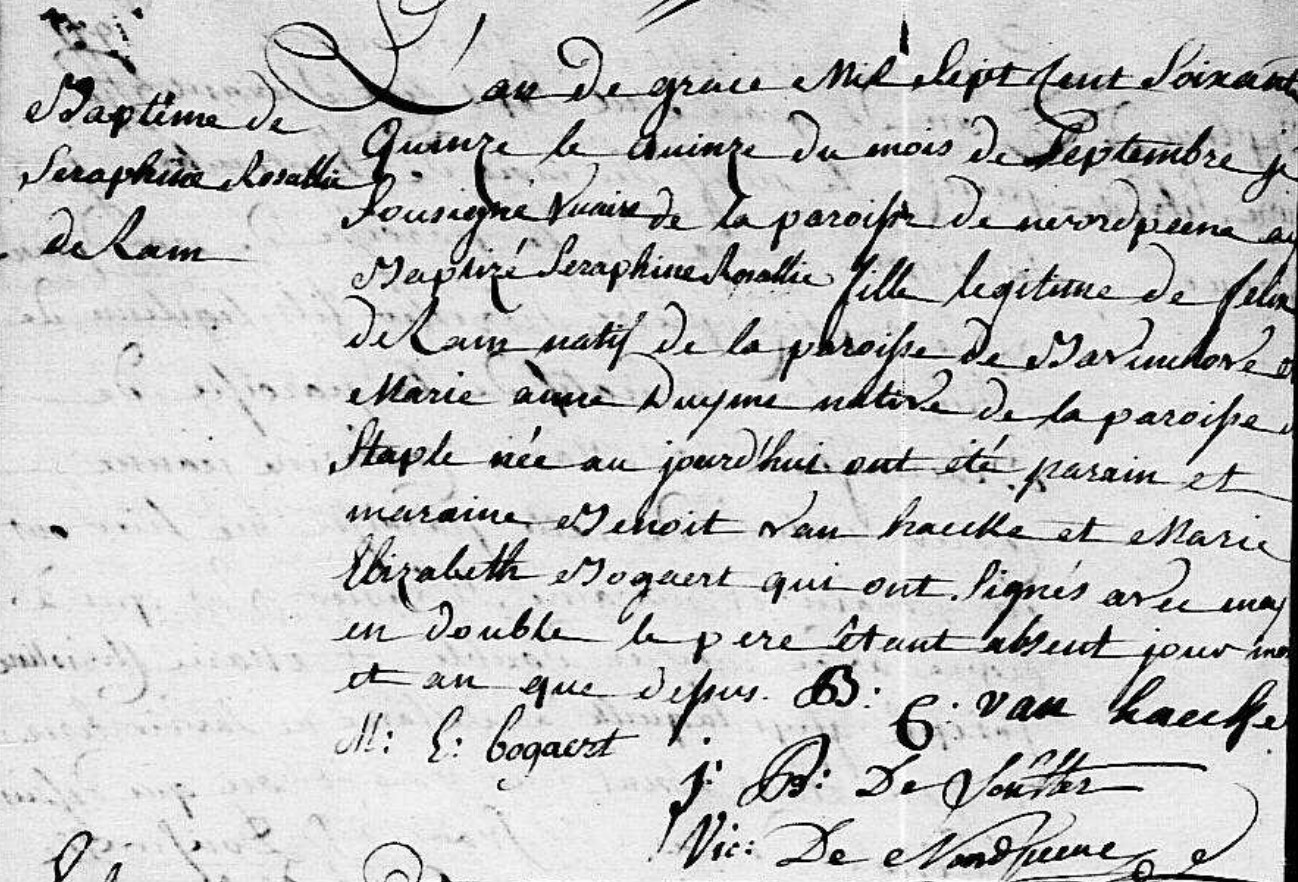 Baptême de
Seraphine Rosallie
de Ram
L'an de grace Mil Sept Cent Soixant
Quinze le Quinze du mois de Septembre j
Sousigné vicaire de la paroisse de noordpeene ay
Baptizé Seraphine Rosallie fille legitime de felix
de Ram natif de la paroisse de Bavinchove et
Marie anne Duyme native de la paroisse d
Staple née au jourd'hui ont été parain et
maraine Benoit van haecke et Marie
Elizabeth Bogaert qui ont Signés avec moy
en double le pere étant absent jour moi
et an que dessus. B: C: van haecke
M: E: bogaert
j: B: De
Vic: De Noordpeene